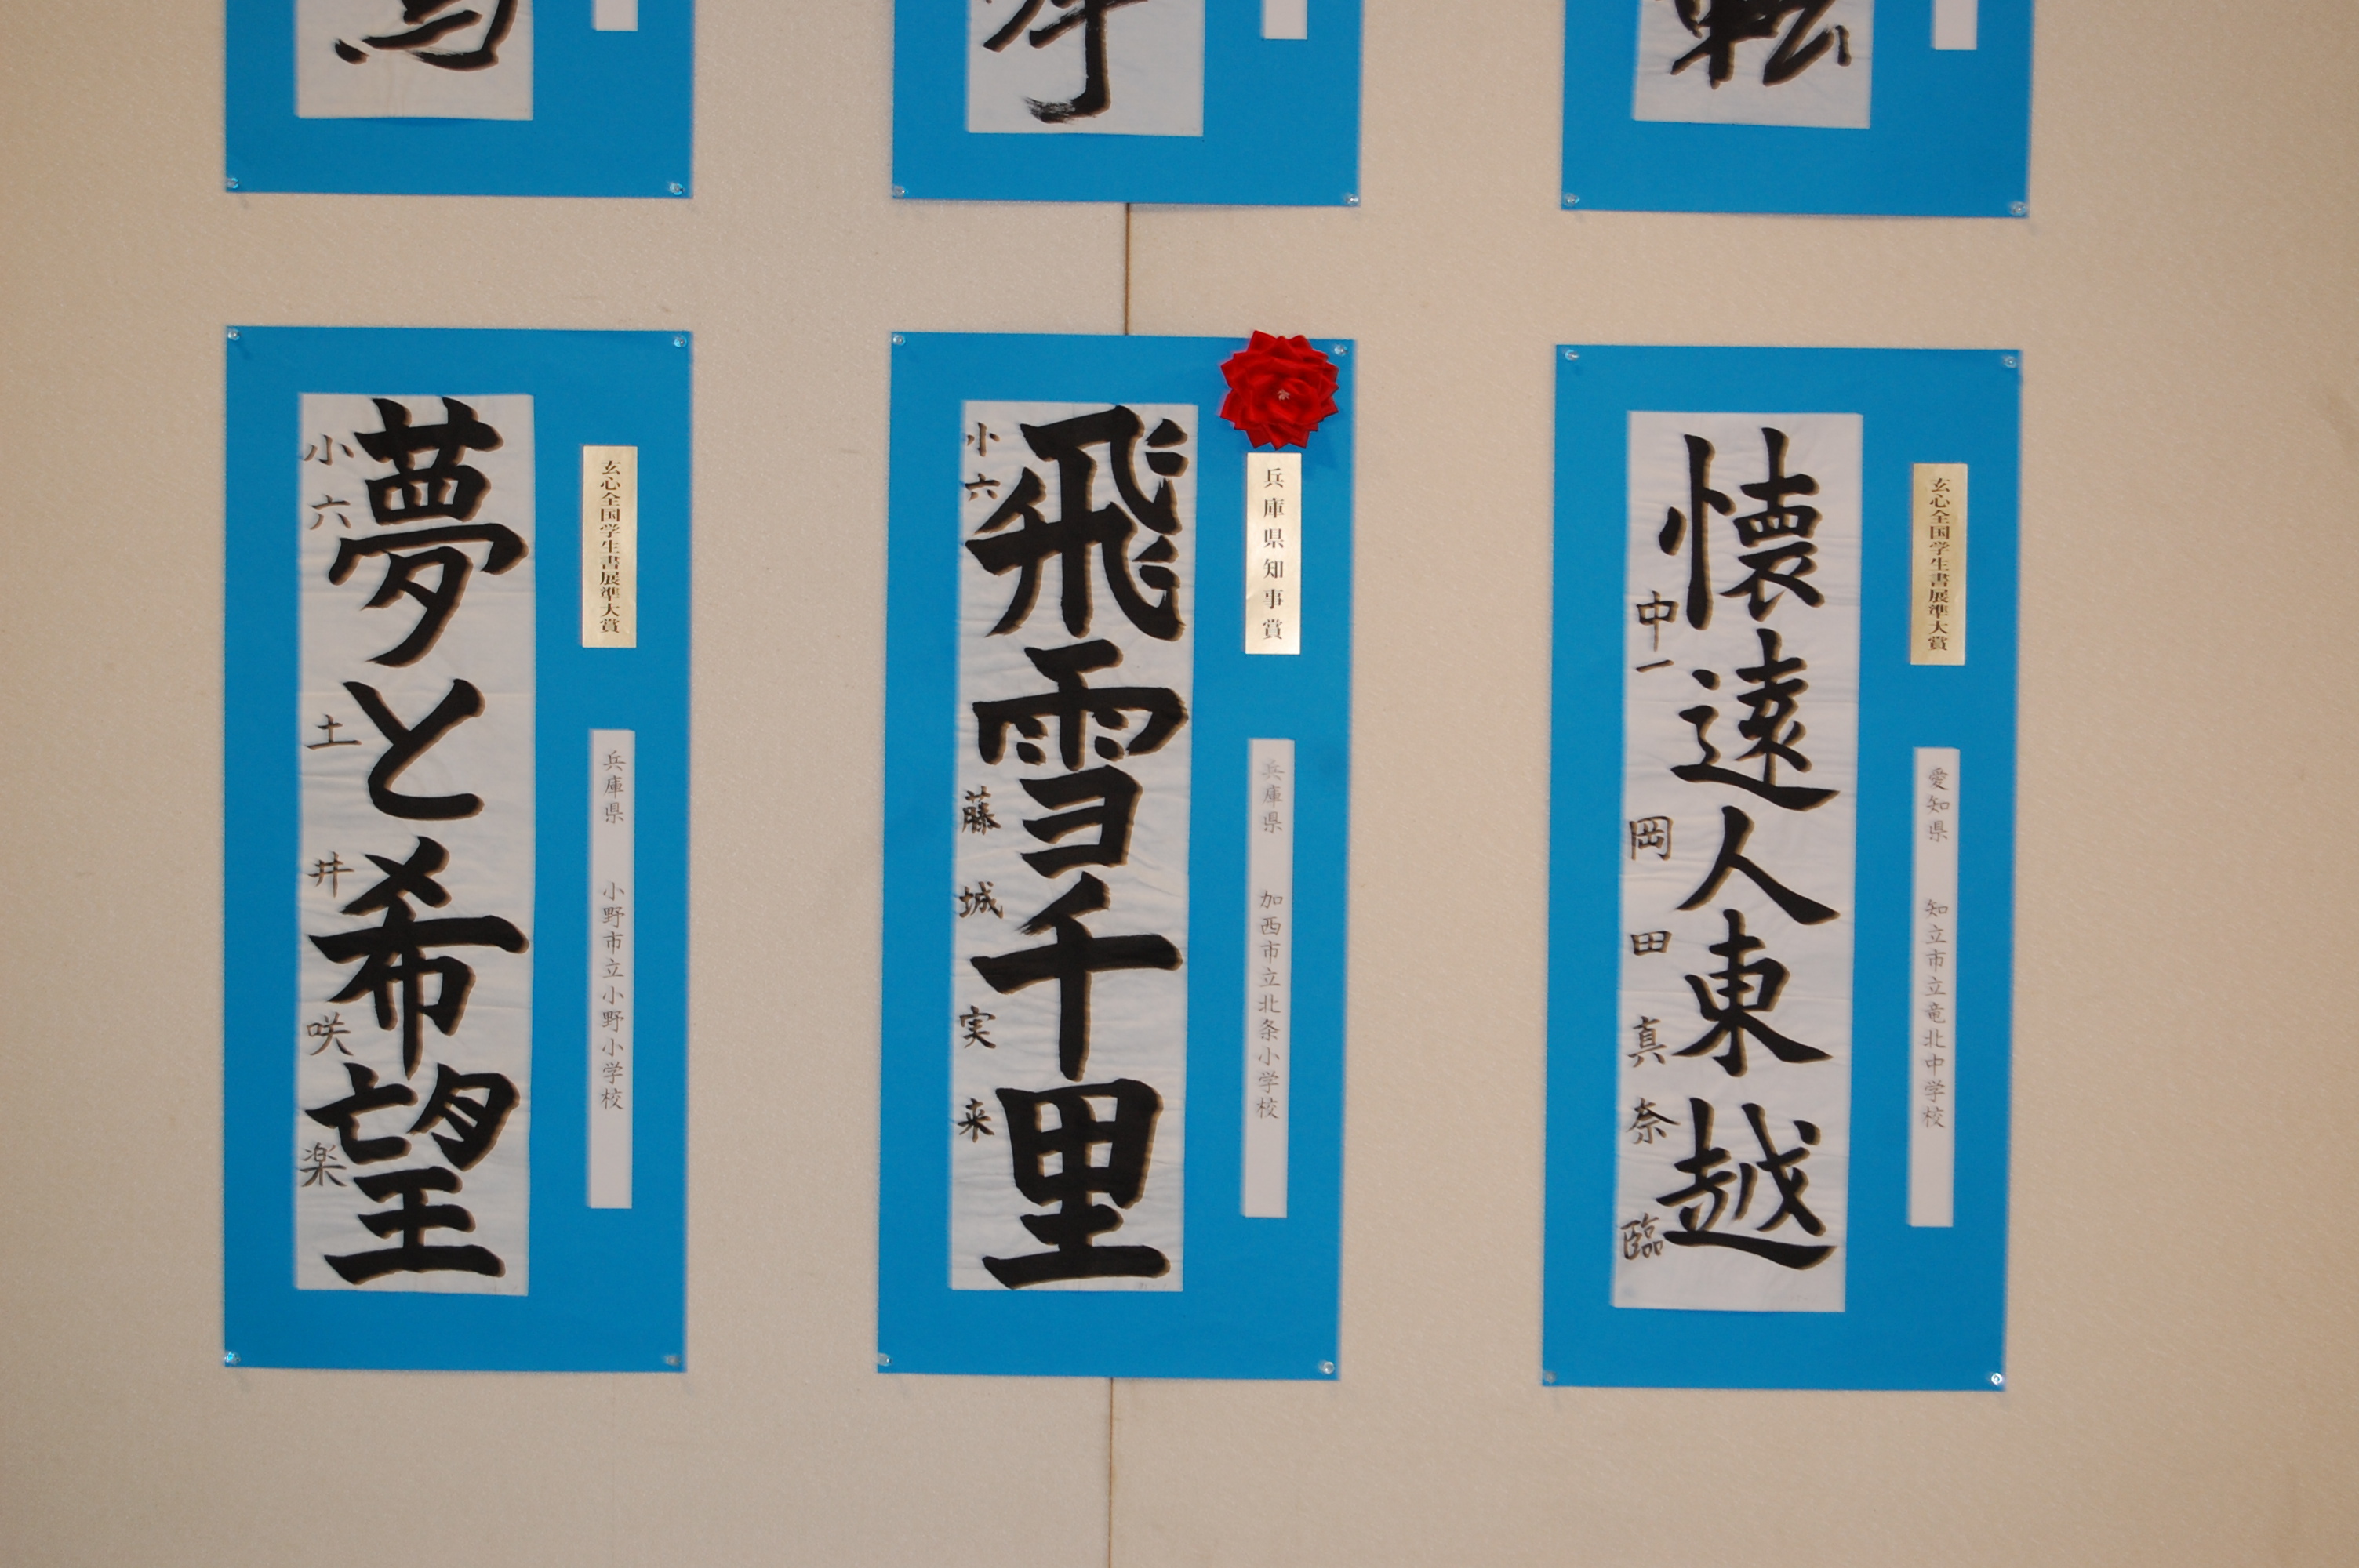 夢と希望
小六 土井咲楽
玄心全国学生書展準大賞
兵庫県 小野市立小野小学校
飛雪千里
小六 藤城実来
兵庫県知事賞
兵庫県 加西市立北条小学校
懐遠人東越
中一 岡田真奈臨
玄心全国学生書展準大賞
愛知県 知立市立竜北中学校